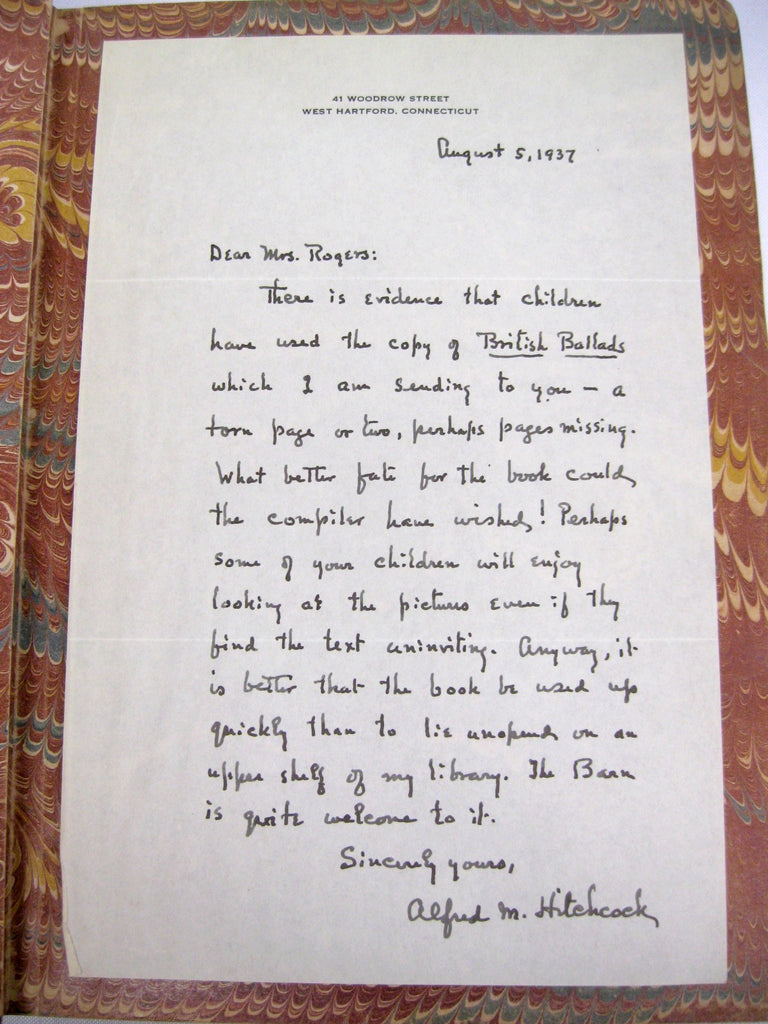 41 WOODROW STREET
WEST HARTFORD, CONNECTICUT
August 5, 1937
Dear Mrs. Rogers:
There is evidence that children
have used the copy of British Ballads
which I am sending to you — a
torn page or two, perhaps pages missing.
What better fate for the book could
the compiler have wished! Perhaps
some of your children will enjoy
looking at the pictures even if they
find the text uninviting. Anyway, it
is better that the book be used up
quickly than to lie unopened on an
upper shelf of my library. The Barn
is quite welcome to it.
Sincerely yours,
Alfred M. Hitchcock